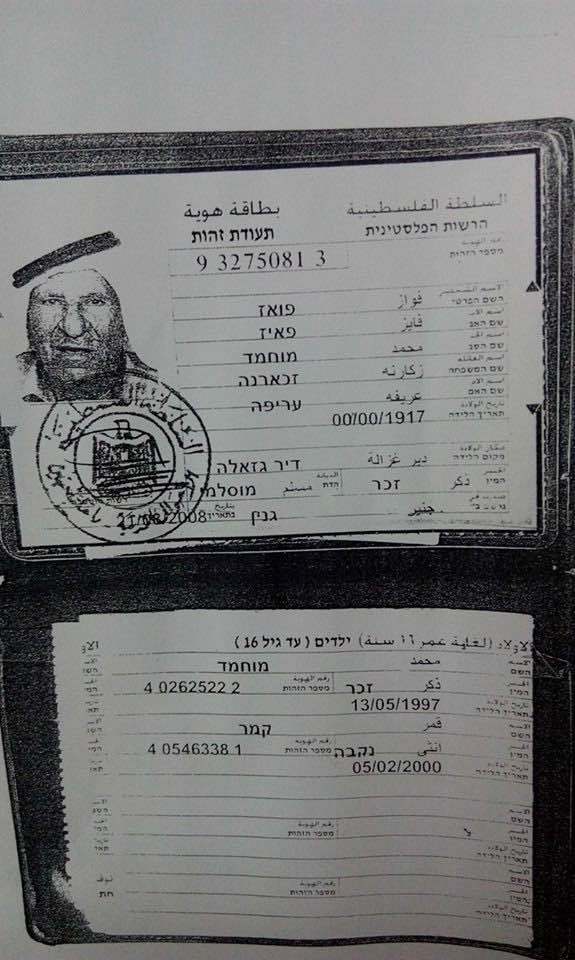 السلطة الفلسطينية بطاقة هوية
הרשות הפלסטינית תעודת זהות
رقم الهوية
מספר הזהות 9 3275081 3
الاسم الشخصي
השם הפרטי فواز פואז
اسم الاب
שם האב فايز פאיז
اسم الجد
שם הסב محمد מוחמד
اسم العائلة
שם המשפחה زكارنه זכארנה
اسم الام
שם האם عريفه עריפה
تاريخ الولادة
תאריך הלידה 00/00/1917
مكان الولادة
מקום הלידה دير غزالة דיר גזאלה
الجنس
המין ذكر זכר الديانة הדת مسلم מוסלמי
صدرت في
جنين גנין بتاريخ בתאריך 21/08/2008
الاولاد (لغاية عمر ١٦ سنة) ילדים (עד גיל 16)
الاسم
השם محمد מוחמד
الجنس
המין ذكر זכר رقم الهوية מספר הזהות 4 0262522 2
تاريخ الولادة
תאריך הלידה 13/05/1997
الاسم
השם قمر קמר
الجنس
המין انثى נקבה رقم الهوية מספר הזהות 4 0546338 1
تاريخ الولادة
תאריך הלידה 05/02/2000
الاسم
השם
الجنس
המין رقم الهوية מספר הזהות
تاريخ الولادة
תאריך הלידה
الاسم
השם
الجنس
המין رقم الهوية מספר הזהות
تاريخ الولادة
תאריך הלידה